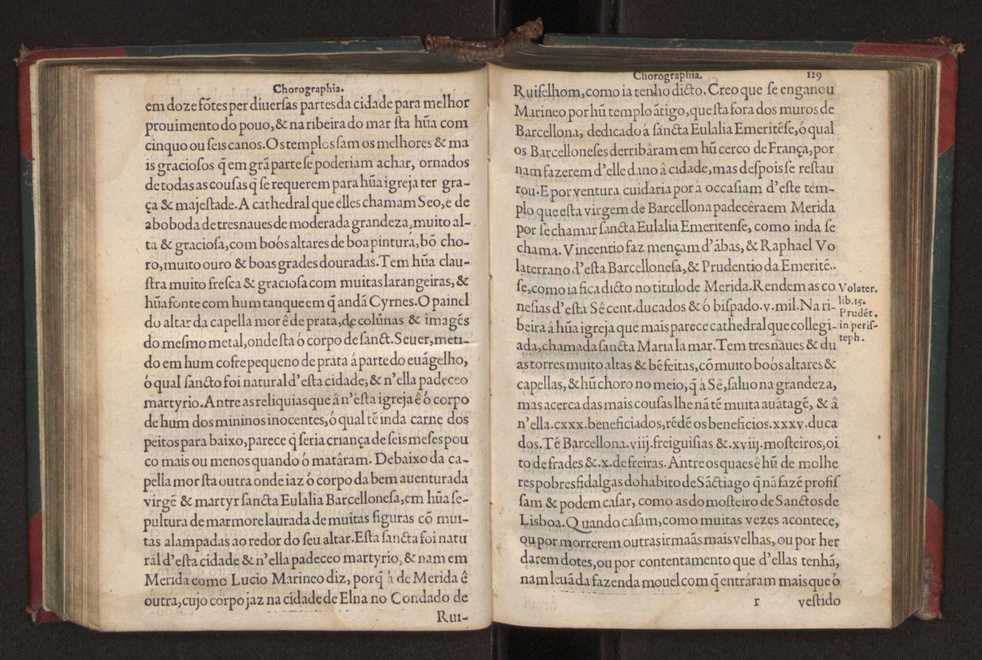 Chorographia.
em doze fõtes per diuersas partes da cidade para melhor
prouimento do pouo, & na ribeira do mar sta hũa com
cinquo ou seis canos. Os templos sam os melhores & ma
is graciosos q̃ em grã parte se poderiam achar, ornados
de todas as cousas q̃ se requerem para hũa igreja ter gra-
ça & majestade. A cathedral que elles chamam Seo, é de
aboboda de tres naues de moderada grandeza, muito al-
ta & graciosa, com boós altares de boa pintura, bõ cho-
ro, muito ouro & boas grades douradas. Tem hũa clau-
stra muito fresca & graciosa com muitas larangeiras, &
hũa fonte com hum tanque em q̃ andã Cyrnes. O painel
do altar da capella mor ê de prata, de colũnas & imagẽs
do mesmo metal, onde sta ó corpo de sanct. Seuer, meti-
do em hum cofre pequeno de prata á parte do euãgelho,
ó qual sancto foi natural d'esta cidade, & n'ella padeceo
martyrio. Antre as reliquias que â n'esta igreja ê ó corpo
de hum dos mininos inocentes, ó qual tẽ inda carne dos
peitos para baixo, parece q̃ seria criança de seis meses pou
co mais ou menos quando ó matâram. Debaixo da ca-
pella mor sta outra onde iaz ó corpo da bem auenturada
virgẽ & martyr sancta Eulalia Barcellonesa, em hũa se-
pultura de marmore laurada de muitas figuras cõ mui-
tas alampadas ao redor do seu altar. Esta sancta foi natu
ral d'esta cidade & n'ella padeceo martyrio, & nam em
Merida como Lucio Marineo diz, porq̃ à de Merida ê
outra, cujo corpo jaz na cidade de Elna no Condado de
Rui-
Chorographia. 129
Ruiselhom, como ia tenho dicto. Creo que se enganou
Marineo por hũ templo ãtigo, que sta fora dos muros de
Barcellona, dedicado á sancta Eulalia Emeritẽse, ó qual
os Barcelloneses derribâram em hũ cerco de França, por
nam fazerem d'elle dano á cidade, mas despois se restau
rou. E por ventura cuidaria por a occasiam d'este tem-
plo que esta virgem de Barcellona padecêra em Merida
por se chamar sancta Eulalia Emeritense, como inda se
chama. Vincentio faz mençam d'âbas, & Raphael Vo
laterrano d'esta Barcellonesa, & Prudentio da Emeritẽ-
se, como ia fica dicto no titulo de Merida. Rendem as co
nesias d'esta Sê cent. ducados & ó bispado. v. mil. Na ri-
beira á hũa igreja que mais parece cathedral que collegi-
ada, chamada sancta Maria la mar. Tem tres naues & du
as torres muito altas & bẽ feitas, cõ muito boós altares &
capellas, & hũ choro no meio, q̃ à Sê, saluo na grandeza,
mas acerca das mais cousas lhe nã tẽ muita auãtagẽ, & â
n'ella. cxxx. beneficiados, rẽdẽ os beneficios. xxxv. duca
dos. Tẽ Barcellona. viij. freiguisias & .xviij. mosteiros, oi
to de frades & .x. de freiras. Antre os quaes ê hũ de molhe
res pobres fidalgas do habito de Sãctiago q̃ nã fazẽ profis
sam & podem casar, como as do mosteiro de Sanctos de
Lisboa. Quando casam, como muitas vezes acontece,
ou por morrerem outras irmaãs mais velhas, ou por her
darem dotes, ou por contentamento que d'ellas tenhã,
nam leuã da fazenda mouel com q̃ entrâram mais que ó
r vestido
Volater.
lib. 15.
Prudẽt.
in peris-
teph.